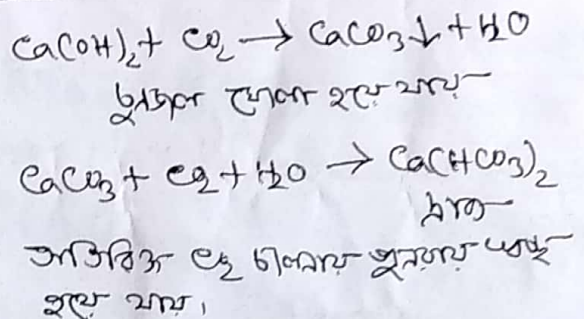 Ca(OH)₂ + CO₂ → CaCO₃↓ + H₂O
চুনজল ঘোলা হয়ে যায়
CaCO₃ + CO₂ + H₂O → Ca(HCO₃)₂
দ্রাব্য
অতিরিক্ত CO₂ চালনায় পুনরায় স্বচ্ছ
হয়ে যায়।